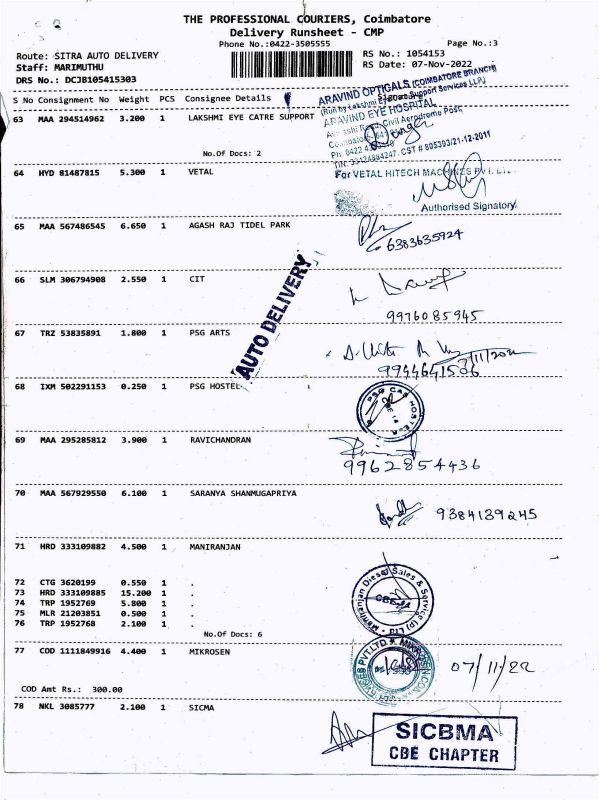 THE PROFESSIONAL COURIERS, Coimbatore
Delivery Runsheet - CMP
Phone No.:0422-3505555
Page No.:3
Route: SITRA AUTO DELIVERY
RS No.: 1054153
Staff: MARIMUTHU
RS Date: 07-Nov-2022
DRS No.: DCJB105415303
S No Consignment No Weight PCS Consignee Details
ARAVIND OPTICALS (COIMBATORE BRANCH)
63 MAA 294514962 3.200 1 LAKSHMI EYE CATRE SUPPORT
ARAVIND EYE HOSPITAL
Civil Aerodrome Post,
CST # 805393/21-12-2011
No.Of Docs: 2
64 HYD 81487815 5.300 1 VETAL
For VETAL HITECH MACHINES PVT. LTD.
Authorised Signatory.
65 MAA 567486545 6.650 1 AGASH RAJ TIDEL PARK
6383635924
66 SLM 306794908 2.550 1 CIT
9976085945
AUTO DELIVERY
67 TRZ 53835891 1.800 1 PSG ARTS
9944641506
68 IXM 502291153 0.250 1 PSG HOSTEL
PSG CAS HOSTELS
69 MAA 295285812 3.900 1 RAVICHANDRAN
9962854436
70 MAA 567929550 6.100 1 SARANYA SHANMUGAPRIYA
9384139245
71 HRD 333109882 4.500 1 MANIRANJAN
Maniranjan Diesel Sales & Service (P) Ltd
CBE
72 CTG 3620199 0.550 1 .
73 HRD 333109885 15.200 1 .
74 TRP 1952769 5.800 1 .
75 MLR 21203851 0.500 1 .
76 TRP 1952768 2.100 1 .
No.Of Docs: 6
77 COD 1111849916 4.400 1 MIKROSEN
07/11/22
COD Amt Rs.: 300.00
78 NKL 3085777 2.100 1 SICMA
SICBMA
CBE CHAPTER